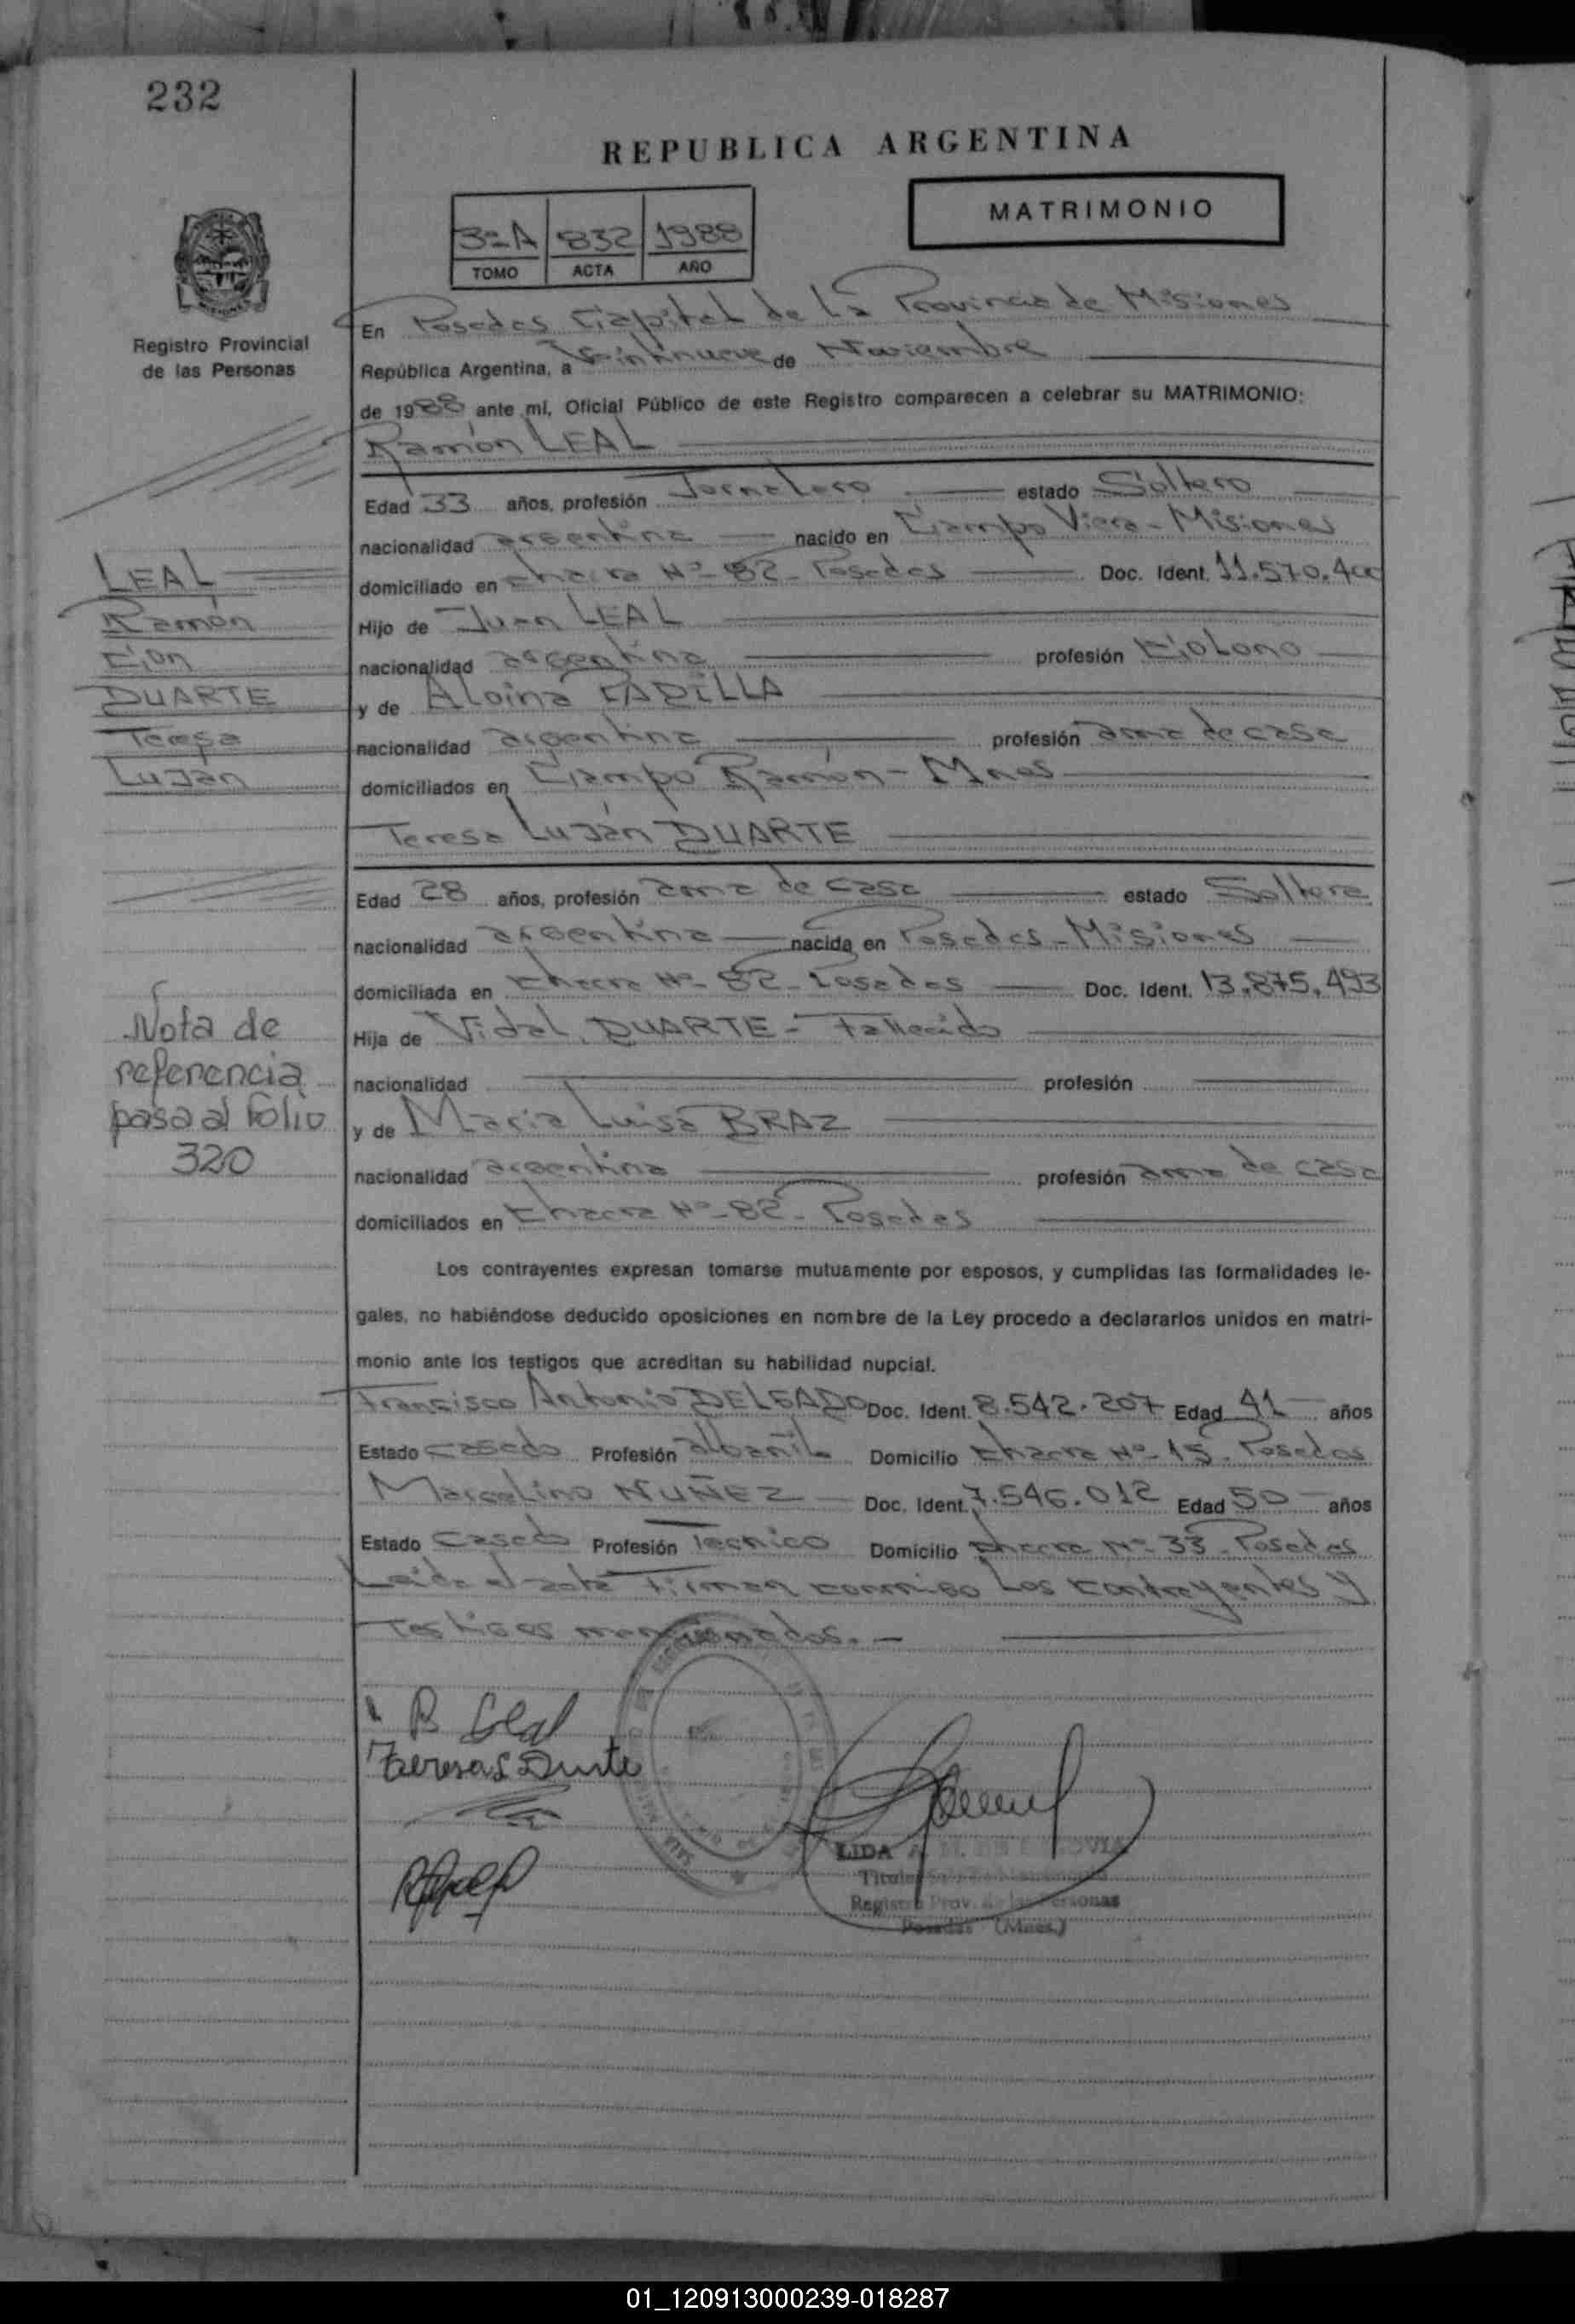 232
REPUBLICA ARGENTINA
MATRIMONIO
3ºA 832 1988
TOMO ACTA AÑO
Registro Provincial
de las Personas
En Posadas Capital de La Provincia de Misiones
República Argentina, a Veintinueve de Noviembre
de 1988 ante mí, Oficial Público de este Registro comparecen a celebrar su MATRIMONIO:
Ramón LEAL
Edad 33 años, profesión Jornalero estado Soltero
nacionalidad argentina nacido en Campo Viera - Misiones
domiciliado en Chacra Nº- 82 - Posadas Doc. Ident. 11.570.400
Hijo de Juan LEAL
nacionalidad argentina profesión Colono
y de PADILLA
nacionalidad argentina profesión ama de casa
domiciliados en Campo Ramón - Mnes
Teresa Luján DUARTE
Edad 28 años, profesión ama de casa estado Soltera
nacionalidad argentina nacida en Posadas - Misiones
domiciliada en Chacra Nº- 82 - Posadas Doc. Ident. 13.875.493
Hija de Vidal DUARTE - Fallecido
nacionalidad profesión
y de Maria Luisa BRAZ
nacionalidad argentina profesión ama de casa
domiciliados en Chacra Nº- 82 - Posadas
Los contrayentes expresan tomarse mutuamente por esposos, y cumplidas las formalidades le-
gales, no habiéndose deducido oposiciones en nombre de la Ley procedo a declararlos unidos en matri-
monio ante los testigos que acreditan su habilidad nupcial.
Francisco Antonio DELGADO Doc. Ident. 8.542.207 Edad 41 años
Estado casado Profesión albañil Domicilio Chacra Nº- 15 - Posadas
Marcelino NUÑEZ Doc. Ident. 7.546.012 Edad 50 años
Estado Casado Profesión Tecnico Domicilio Chacra Nº- 33 - Posadas
Leida el acta Firman conmigo Los contrayentes y
Testigos mencionados. -
LEAL
Ramón
Con
DUARTE
Teresa
Luján
Nota de
referencia
pasa al folio
320
R Leal
Teresa L Duarte
LIDA
Registro Prov. de las Personas
Posadas (Mnes.)
01_120913000239-018287